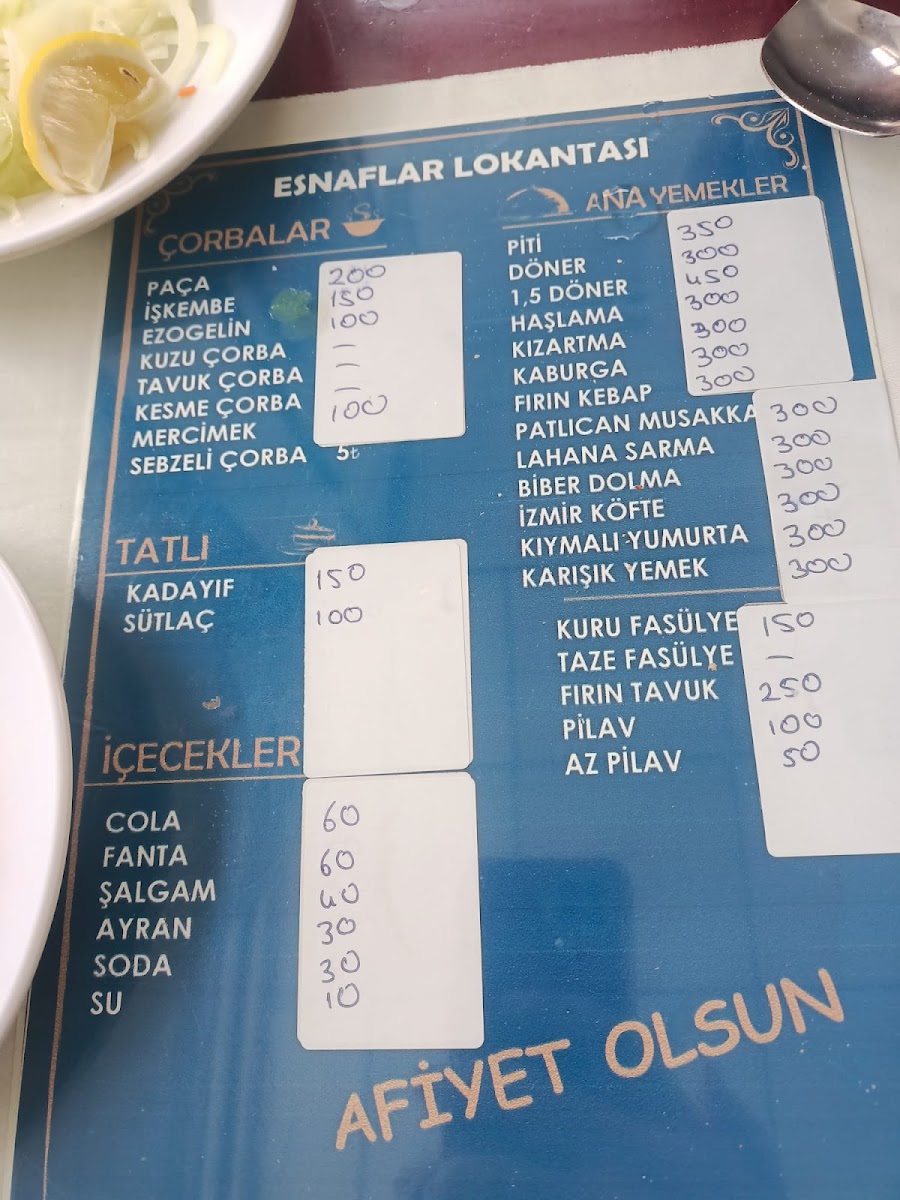 ESNAFLAR LOKANTASI
ÇORBALAR
PAÇA 200
İŞKEMBE 150
EZOGELİN 100
KUZU ÇORBA -
TAVUK ÇORBA -
KESME ÇORBA -
MERCİMEK 100
SEBZELİ ÇORBA 5₺
TATLI
KADAYIF 150
SÜTLAÇ 100
İÇECEKLER
COLA 60
FANTA 60
ŞALGAM 40
AYRAN 30
SODA 30
SU 10
ANA YEMEKLER
PİTİ 350
DÖNER 300
1,5 DÖNER 450
HAŞLAMA 300
KIZARTMA 300
KABURGA 300
FIRIN KEBAP 300
PATLICAN MUSAKKA 300
LAHANA SARMA 300
BİBER DOLMA 300
İZMİR KÖFTE 300
KIYMALI YUMURTA 300
KARIŞIK YEMEK 300
KURU FASÜLYE 150
TAZE FASÜLYE -
FIRIN TAVUK 250
PİLAV 100
AZ PİLAV 50
AFİYET OLSUN